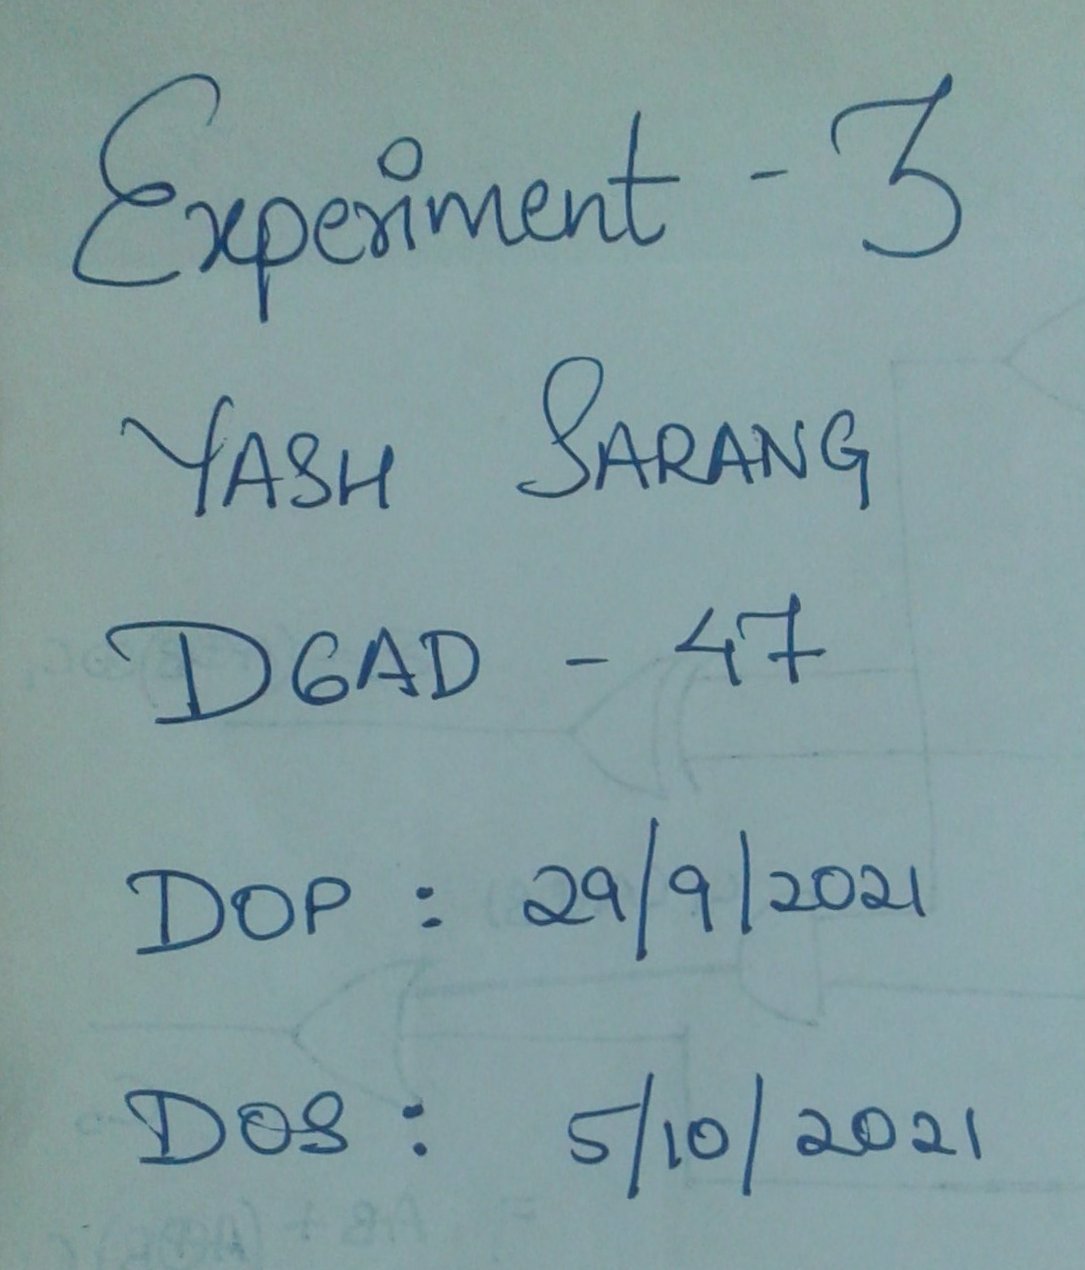 Experiment - 3
YASH SARANG
D6AD - 47
DOP : 29/9/2021
DOS : 5/10/2021